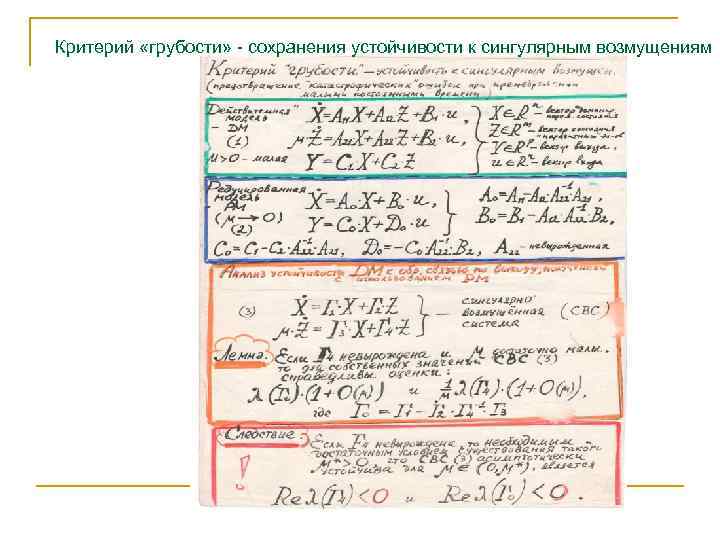 Критерий «грубости» - сохранения устойчивости к сингулярным возмущениям
Критерий "грубости" – устойчивость к сингулярным возмущен.
(предотвращение "катастрофических" ошибок при пренебрежении
малыми постоянными времени)
"Действительная" модель – DM (1) μ>0 – малая
Ẋ=A₁₁X+A₁₂Z+B₁·u,
μ·Ż=A₂₁X+A₂₂Z+B₂·u,
Y=C₁X+C₂Z
X∈Rⁿ – вектор
Z∈Rᵐ – вектор состояния
Y∈Rᵖ – вектор выхода,
u∈Rʳ – вектор входа
Редуцированная модель – (μ→0) (2)
Ẋ=A₀·X+B₀·u
Y=C₀X+D₀·u
A₀=A₁₁-A₁₂A₂₂⁻¹A₂₁,
B₀=B₁-A₁₂A₂₂⁻¹B₂,
C₀=C₁-C₂·A₂₂⁻¹A₂₁, D₀=-C₀A₂₂⁻¹B₂, A₂₂ – невырожденная
Анализ устойчивости DM с обр. связью по выходу, полученного
с использованием DM
(3) Ẋ=Γ₁·X+Γ₂·Z
μ·Ż=Γ₃·X+Γ₄·Z
– сингулярно возмущённая система (СВС)
Лемма. Если Γ₄ невырождена и μ достаточно малы,
то для собственных значений СВС (3)
справедливы оценки:
λ(Γ₀)·(1+O(μ)) и 1/μ λ(Γ₄)·(1+O(μ)),
где Γ₀=Γ₁-Γ₂·Γ₄⁻¹Γ₃
Следствие: Если Γ₄ невырождена, то необходимым
достаточным условием существования такого
μ*>0, что СВС (3) асимптотически
устойчива для μ∈(0,μ*), является
! Reλ(Γ₄)<0 и Reλ(Γ₀)<0.